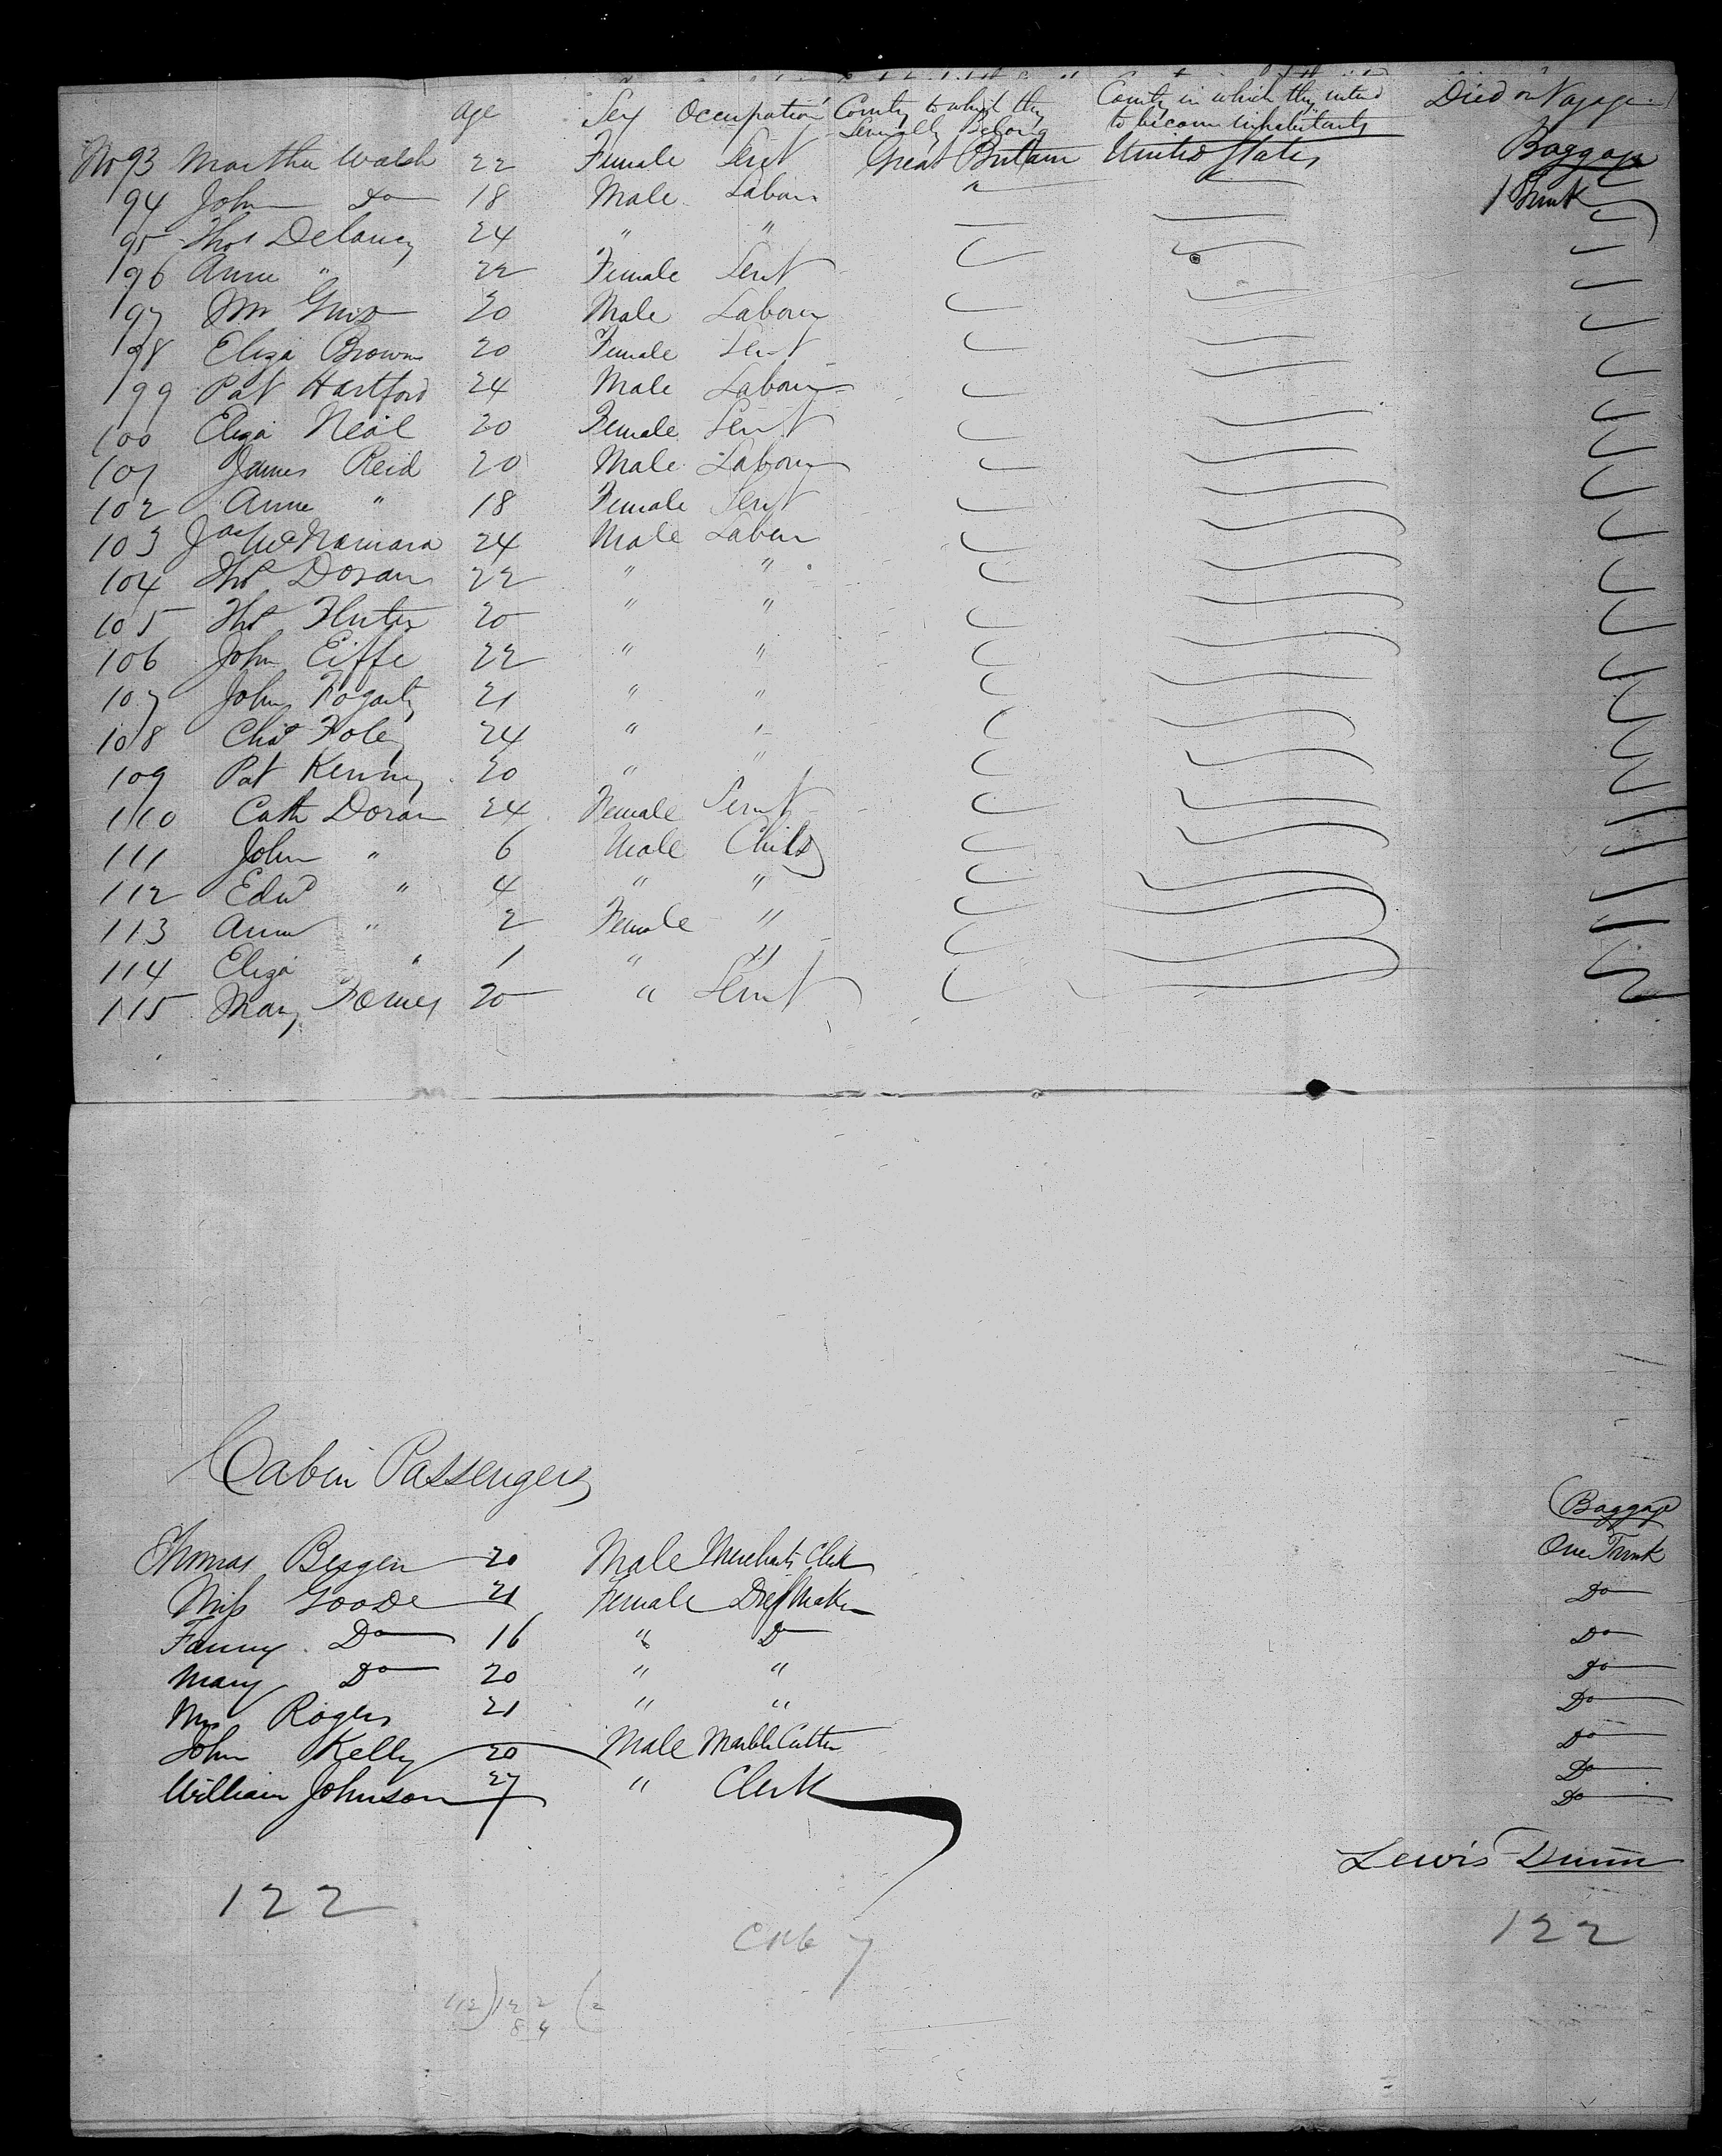 Age Sex Occupation Country to which they Severally Belong Country in which they intend to become inhabitants Died on Voyage
Baggage
No 93 Martha Walsh 22 Female Servt Great Britain United States
94 John Do 18 Male Labour " 1 Trunk
95 Thos Delaney 24 " "
96 Anne " 22 Female Servt
97 Wm 20 Male Labour
98 Eliza Brown 20 Female Servt
99 Pat Hartford 24 Male Labour
100 Eliza Neal 20 Female Servt
101 James Reid 20 Male Labour
102 Anne " 18 Female Servt
103 Jas McNamara 24 Male Labour
104 Thos Doran 22 " "
105 Thos 20 " "
106 John Eiffe 22 " "
107 John Fogarty 21 " "
108 Chas Foley 24 " "
109 Pat Kenny 20 " "
110 Cath Doran 24 Female Servt
111 John " 6 Male Child
112 Edwd " 4 " "
113 Anne " 2 Female "
114 Eliza " 1 " "
115 Mary 20 " Servt
Cabin Passengers
Baggage
Thomas Bergen 20 Male Merchants Clerk One Trunk
Miss Goode 21 Female Dress Maker Do
Fanny Do 16 " Do Do
Mary Do 20 " " Do
Mrs Rogers 21 " " Do
John Kelly 20 Male Marble Cutter Do
William Johnson 27 " Clerk Do
Do
Lewis Dunn
122
122
7